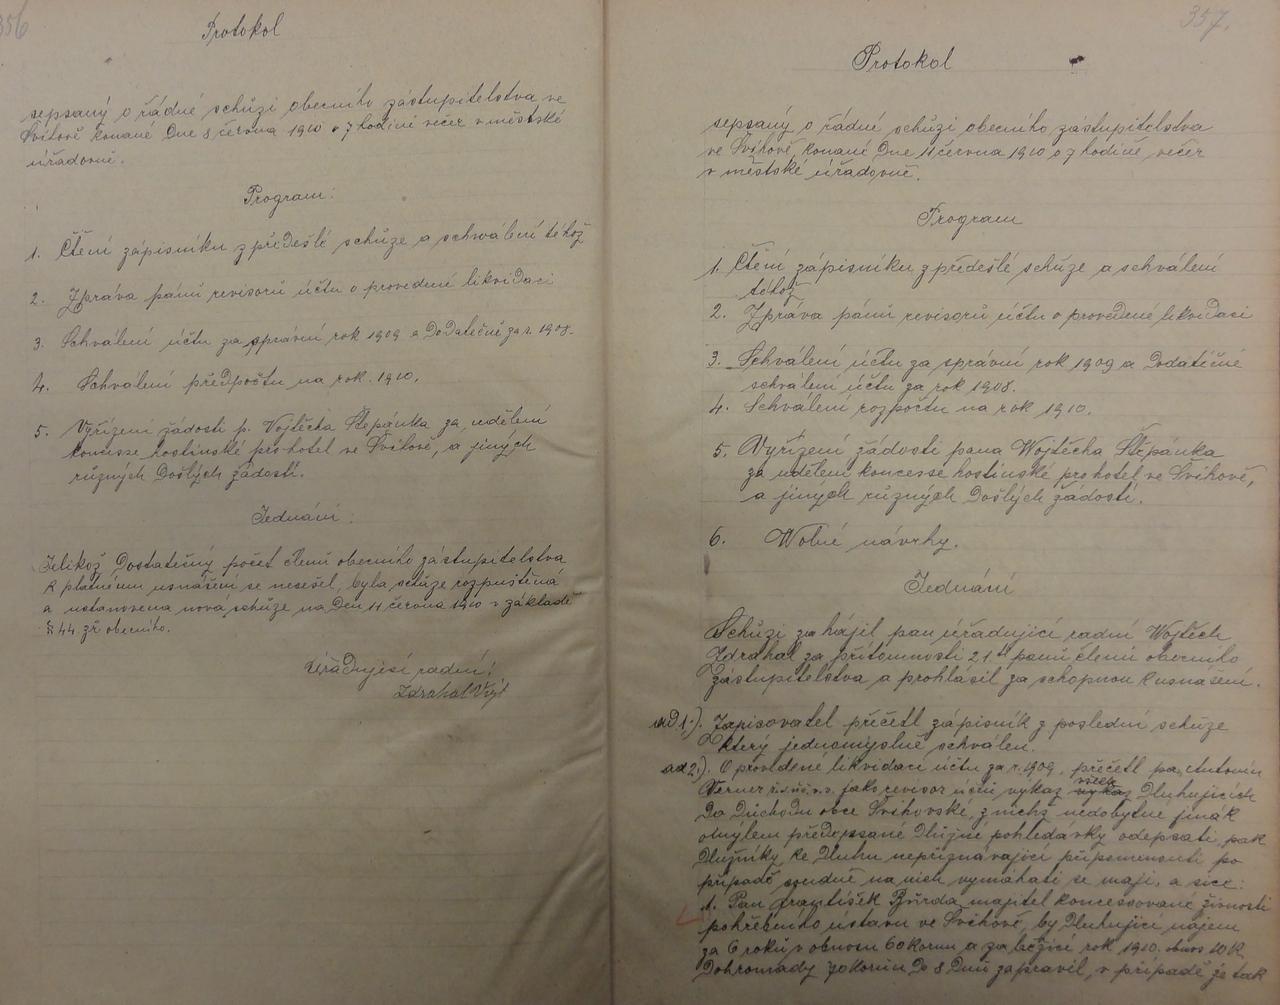 356
Protokol
sepsaný o řádné schůzi obecního zástupitelstva ve
Švihově konané dne 8 června 1910 o 7 hodině večer v městské
úřadovně.
Program:
1. Čtení zápisníku z předešlé schůze a schválení téhož
2. Zpráva pánů revisorů účtu o provedené likvidaci
3. Schválení účtu za správní rok 1909 a dodatečně za r. 1908.
4. Schválení předpočtu na rok 1910.
5. Vyřízení žádosti p. Vojtěcha Štěpánka za udělení
koncesse hostinské pro hotel ve Švihově, a jiných
různých došlých žádostí.
Jednání:
Jelikož dostatečný počet členů obecního zástupitelstva
k platnému usnášení se nesešel, byla schůze rozpuštěná
a ustanovena nová schůze na den 11 června 1910 v základě
§ 44 zř obecního.
Úřadující radní:
Zdrahal Vojt
357.
Protokol
sepsaný o řádné schůzi obecního zástupitelstva
ve Švihově konané dne 11 června 1910 o 7 hodině večer
v městské úřadovně.
Program
1. Čtení zápisníku z předešlé schůze a schválení
téhož
2. Zpráva pánů revisorů účtu o provedené likvidaci
3. Schválení účtu za správní rok 1909 a dodatečné
schválení účtu za rok 1908.
4. Schválení rozpočtu na rok 1910.
5. Vyřízení žádosti pana Wojtěcha Štěpánka
za udělení koncesse hostinské pro hotel ve Švihově,
a jiných různých došlých žádostí.
6. Wolné návrhy.
Jednání
Schůzi zahájil pan úřadující radní Wojtěch
Zdrahal za přítomnosti 21ti pánů členů obecního
zástupitelstva a prohlásil za schopnou k usnášení.
ad 1.). Zapisovatel přečetl zápisník z poslední schůze
který jednomyslně schválen.
ad 2.). O provedené likvidaci účtu za r. 1909, přečetl pan
Verner jako revisor účtů výkaz všech dluhujících
do důchodu obce Švihovské, z nichž nedobytné jinák
omylem předepsané dlužné pohledávky odepsati, pak
dlužníky ke dluhu nepřiznávající připomenouti po
případě soudně na nich vymáhati se mají, a sice:
1. Pan František Bürda majitel koncessované živnosti
pohřebního ústavu ve Švihově, by dluhující nájem
za 6 roků v obnosu 60 korun a za běžící rok 1910. obnos 10 K
dohromady 70 korun do 8 dnů zapravil, v případě že tak